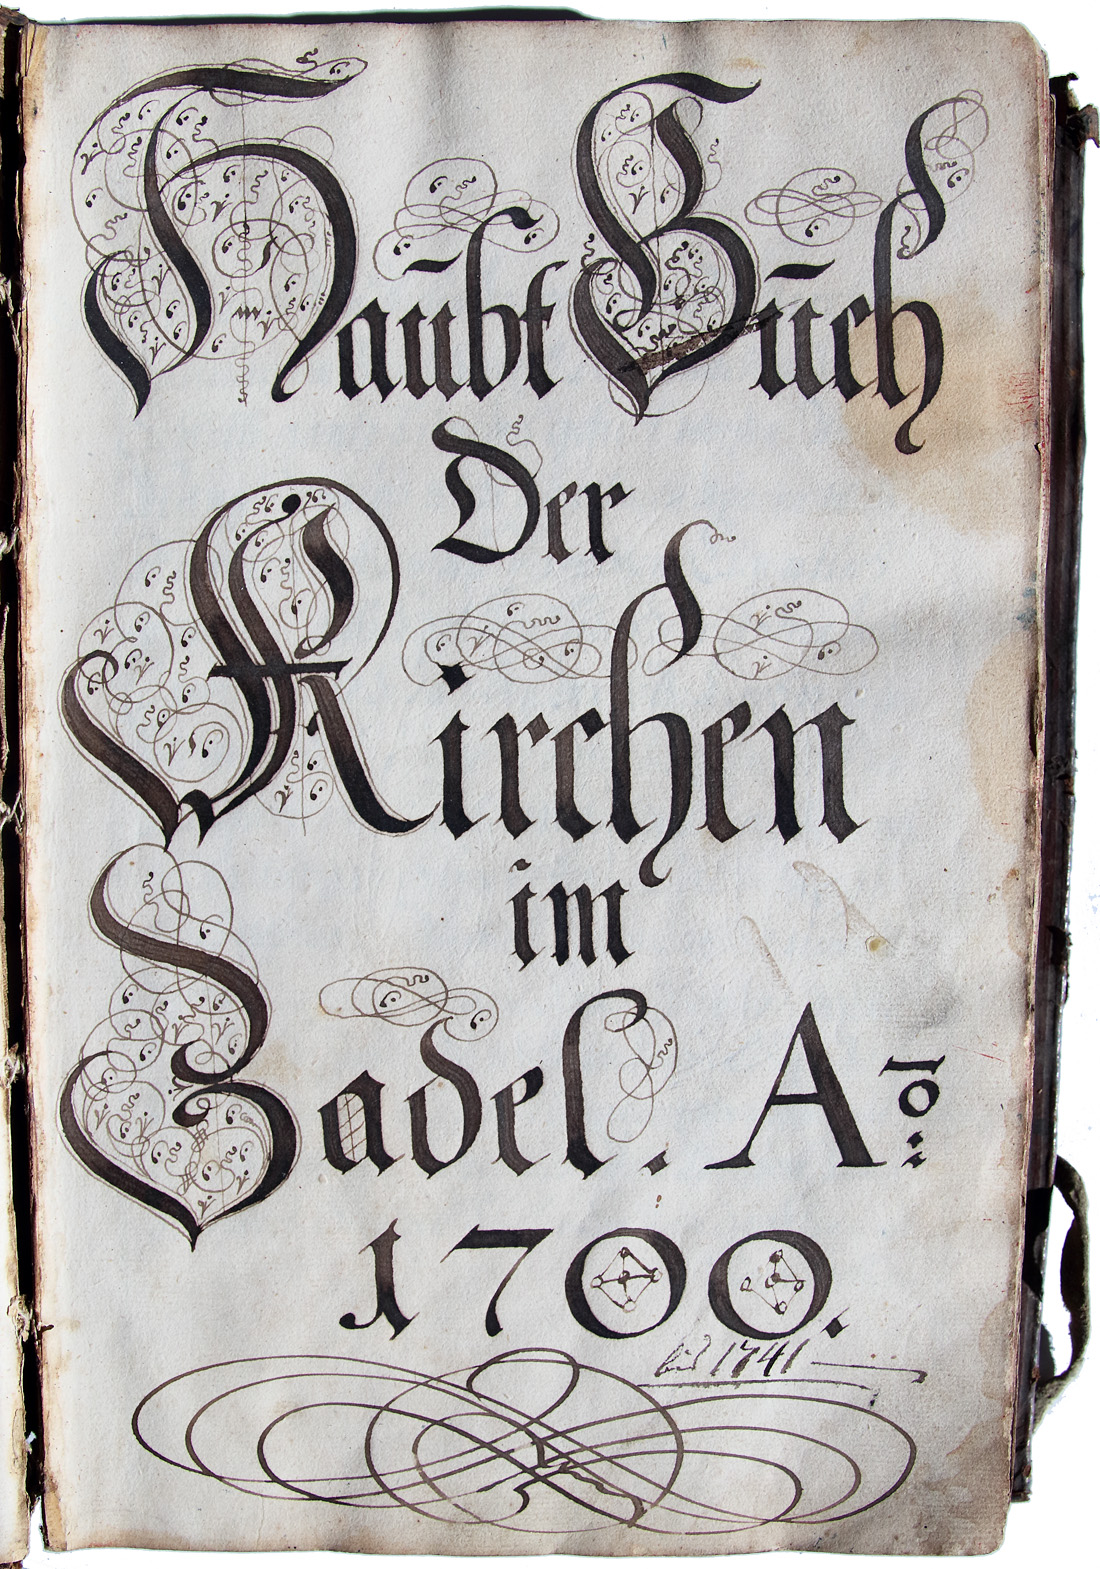 Haūbt Būch
Der
Kirchen
im
Zadel. Aō:
1700.
bis 1741